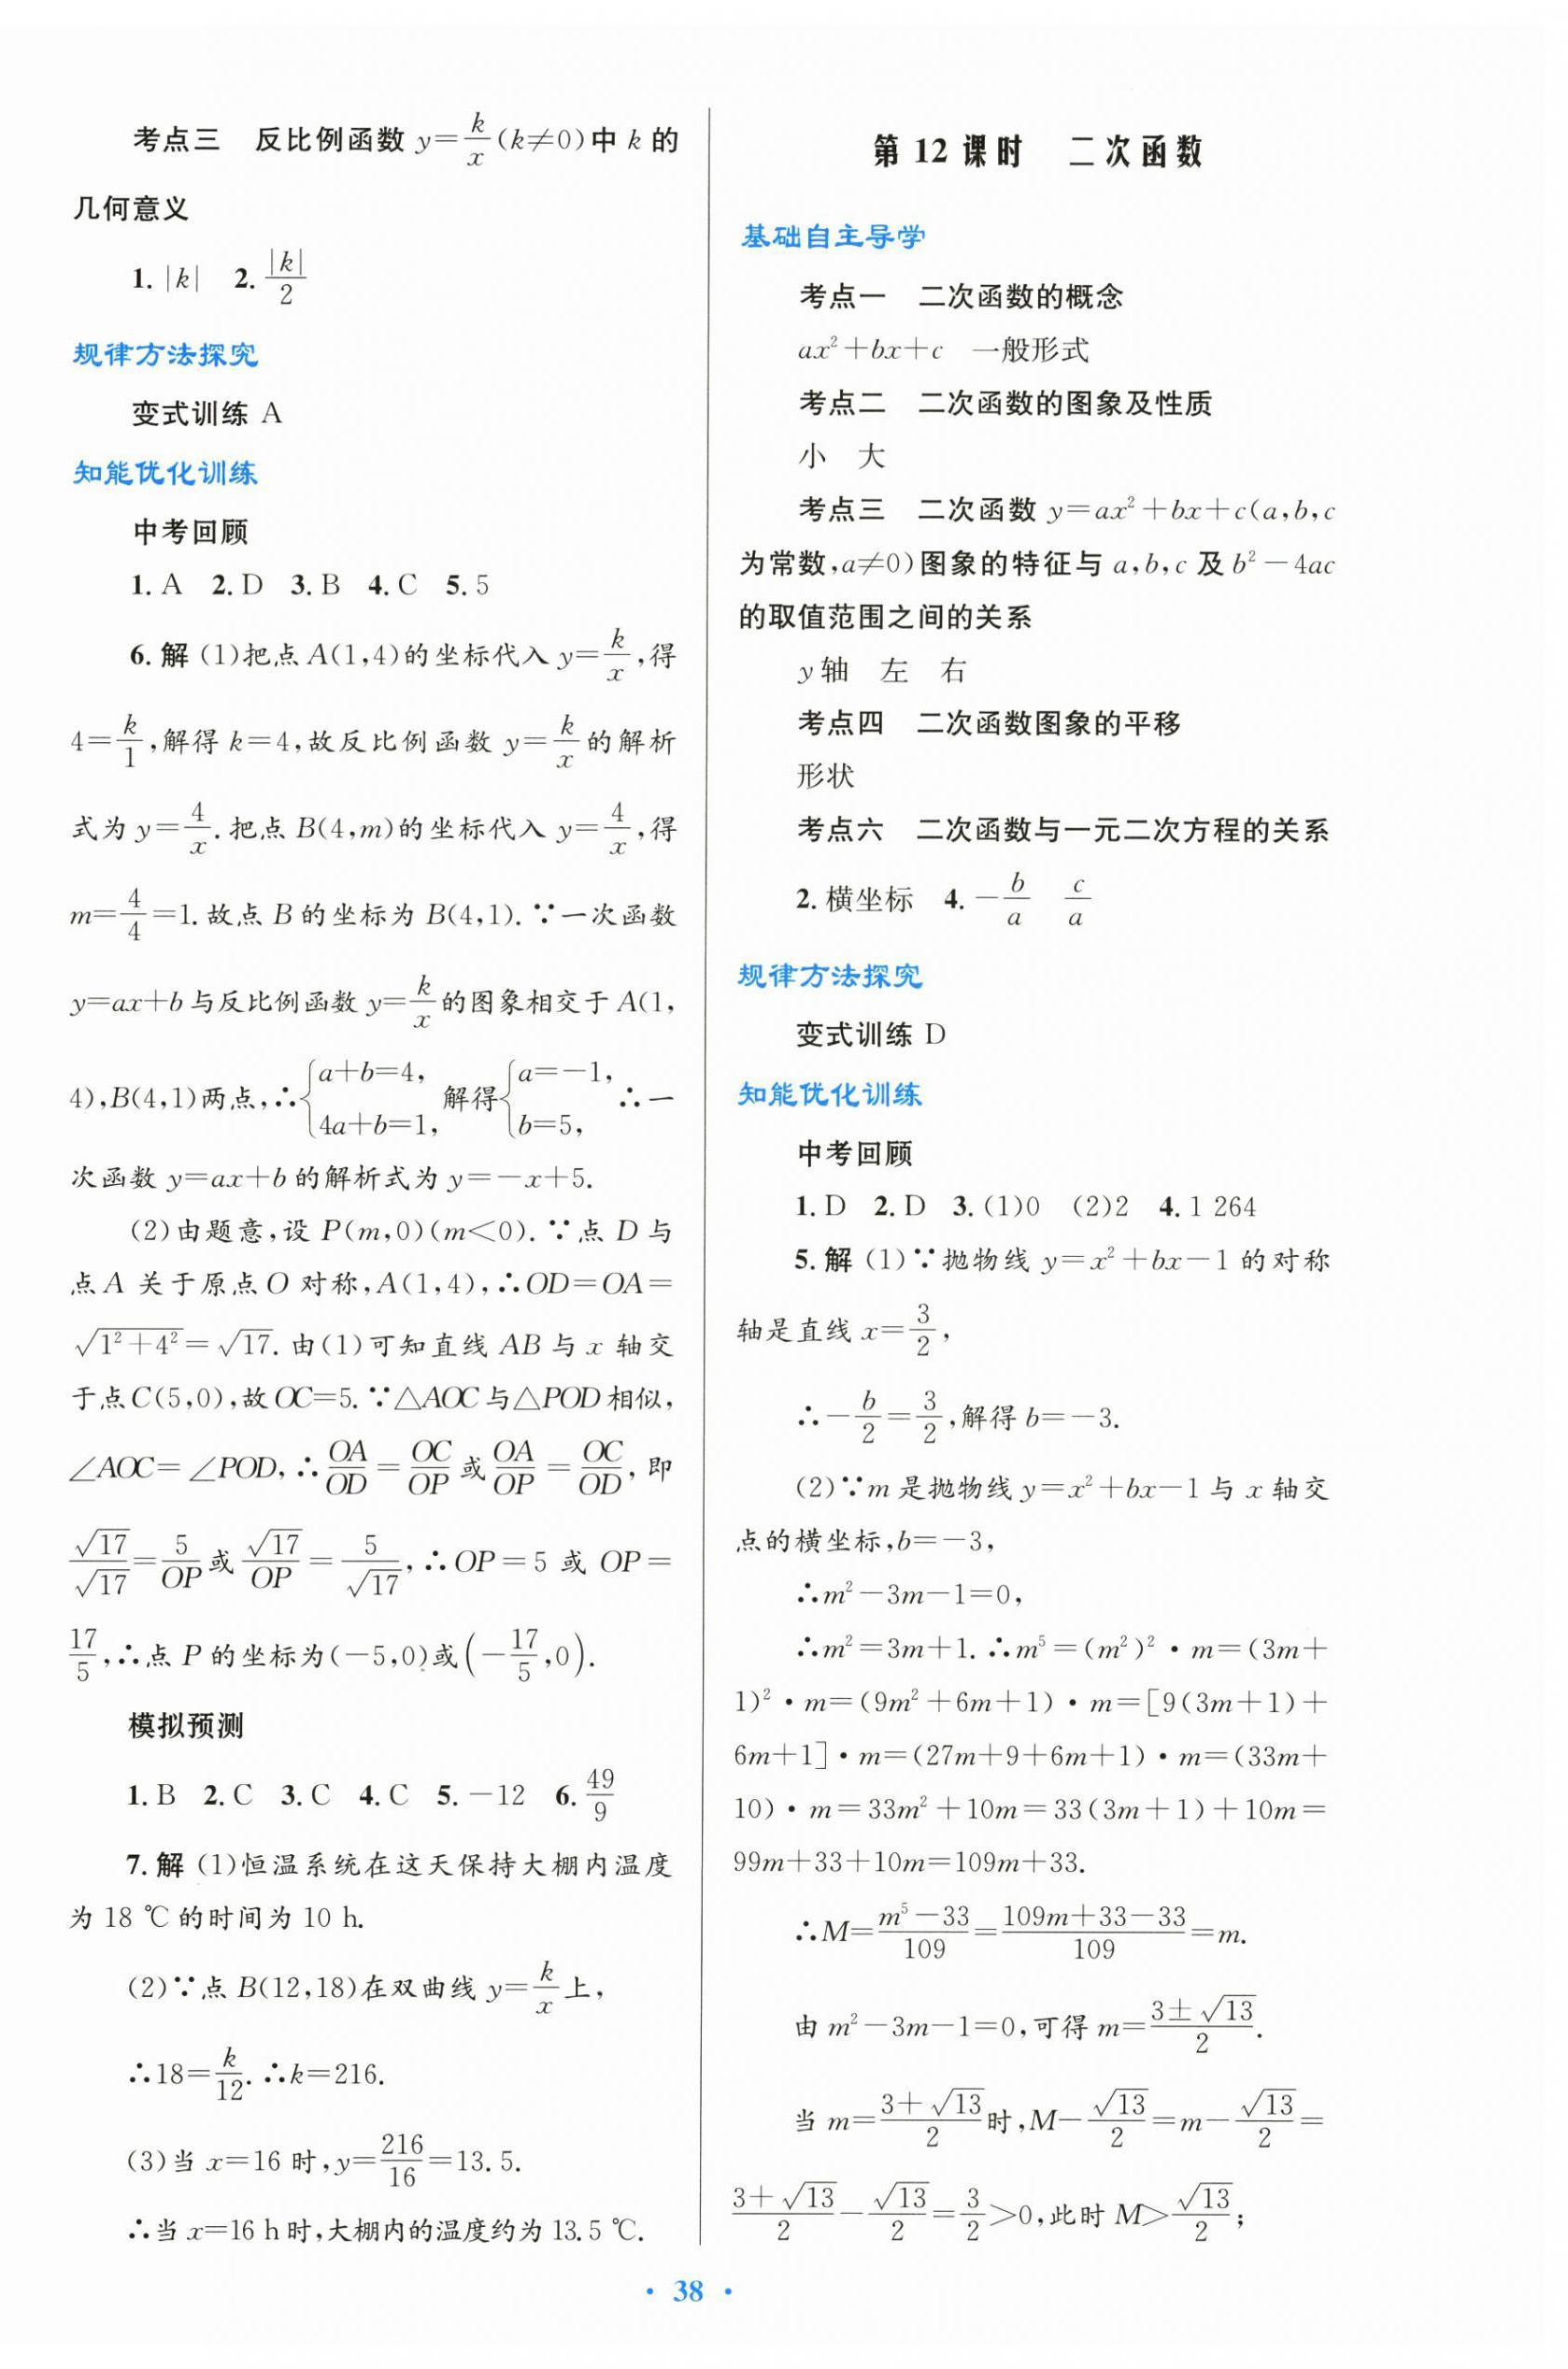 考点三　反比例函数 y=k/x(k≠0)中 k 的
几何意义
1. |k|　2. |k|/2
规律方法探究
变式训练 A
知能优化训练
中考回顾
1. A　2. D　3. B　4. C　5. 5
6. 解 (1)把点 A(1,4)的坐标代入 y=k/x,得
4=k/1,解得 k=4,故反比例函数 y=k/x 的解析
式为 y=4/x.把点 B(4,m)的坐标代入 y=4/x,得
m=4/4=1.故点 B 的坐标为 B(4,1).∵一次函数
y=ax+b 与反比例函数 y=k/x 的图象相交于 A(1,
4),B(4,1)两点,∴{a+b=4, 4a+b=1, 解得{a=-1, b=5, ∴一
次函数 y=ax+b 的解析式为 y=-x+5.
(2)由题意,设 P(m,0)(m<0).∵点 D 与
点 A 关于原点 O 对称,A(1,4),∴OD=OA=
√(1²+4²)=√17.由(1)可知直线 AB 与 x 轴交
于点 C(5,0),故 OC=5.∵△AOC 与△POD 相似,
∠AOC=∠POD,∴OA/OD=OC/OP 或 OA/OP=OC/OD,即
√17/√17=5/OP 或 √17/OP=5/√17,∴OP=5 或 OP=
17/5,∴点 P 的坐标为(-5,0)或(-17/5,0).
模拟预测
1. B　2. C　3. C　4. C　5. -12　6. 49/9
7. 解 (1)恒温系统在这天保持大棚内温度
为 18 ℃的时间为 10 h.
(2)∵点 B(12,18)在双曲线 y=k/x 上,
∴18=k/12.∴k=216.
(3)当 x=16 时,y=216/16=13.5.
∴当 x=16 h 时,大棚内的温度约为 13.5 ℃.
第 12 课时　二次函数
基础自主导学
考点一　二次函数的概念
ax²+bx+c　一般形式
考点二　二次函数的图象及性质
小　大
考点三　二次函数 y=ax²+bx+c(a,b,c
为常数,a≠0)图象的特征与 a,b,c 及 b²-4ac
的取值范围之间的关系
y 轴　左　右
考点四　二次函数图象的平移
形状
考点六　二次函数与一元二次方程的关系
2. 横坐标　4. -b/a　c/a
规律方法探究
变式训练 D
知能优化训练
中考回顾
1. D　2. D　3. (1)0　(2)2　4. 1 264
5. 解 (1)∵抛物线 y=x²+bx-1 的对称
轴是直线 x=3/2,
∴-b/2=3/2,解得 b=-3.
(2)∵m 是抛物线 y=x²+bx-1 与 x 轴交
点的横坐标,b=-3,
∴m²-3m-1=0,
∴m²=3m+1.∴m⁵=(m²)²·m=(3m+
1)²·m=(9m²+6m+1)·m=[9(3m+1)+
6m+1]·m=(27m+9+6m+1)·m=(33m+
10)·m=33m²+10m=33(3m+1)+10m=
99m+33+10m=109m+33.
∴M=(m⁵-33)/109=(109m+33-33)/109=m.
由 m²-3m-1=0,可得 m=(3±√13)/2.
当 m=(3+√13)/2 时,M-√13/2=m-√13/2=
(3+√13)/2-√13/2=3/2>0,此时 M>√13/2;
· 38 ·